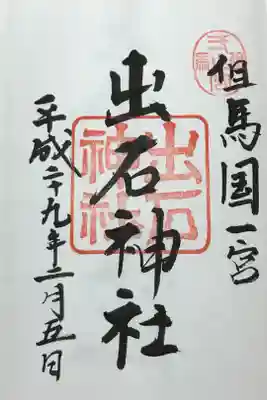 但馬国一宮
出石神社
平成二十九年二月五日
出石神社